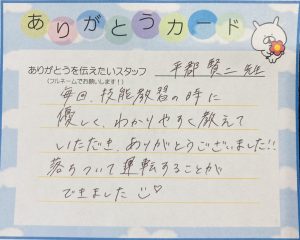 ありがとうカード
ありがとうを伝えたいスタッフ 平郡 賢二 先生
(フルネームでお願いします!)
毎回、技能教習の時に
優しく、わかりやすく教えて
いただき、ありがとうございました!!
落ちついて運転することが
できました